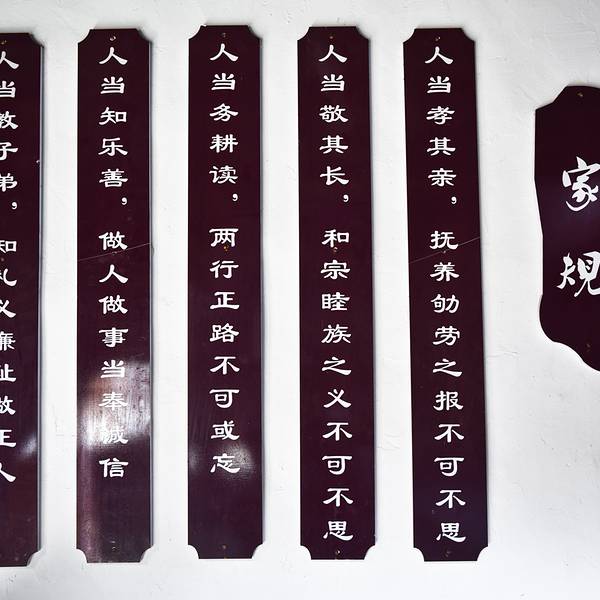 家规
人当孝其亲，抚养劬劳之报不可不思
人当敬其长，和宗睦族之义不可不思
人当务耕读，两行正路不可或忘
人当知乐善，做人做事当奉诚信
人当教子弟，知礼义廉耻做正人